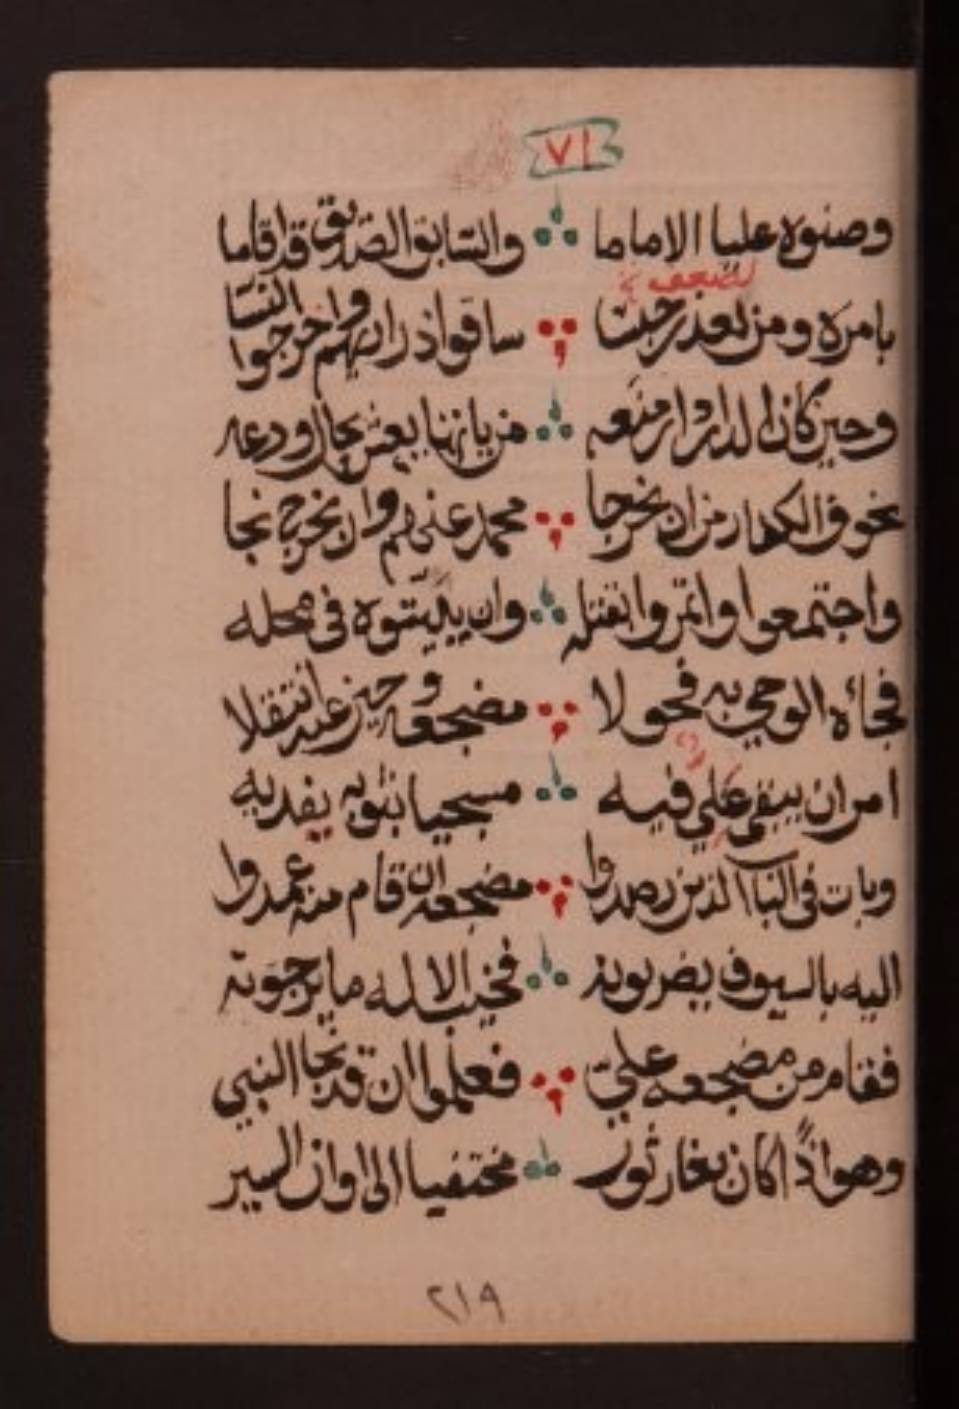 ٧١
وصنوه عليا الاماما والسابق الصديق قد اقاما
بامره ومن لعذر حبسا ساقوا ذراريهم واخرجوا النسا
لضعف
وحين كان الدار دار منعه من ياتها يعش بحال ودعه
تخوف الكفار من ان يخرجا محمد عنهم وان يخرج نجا
واجتمعوا واتمروا لقتله وان يبيتوه في محله
فجائه الوحي به فحولا مضجعه وحين عنه انتقلا
امر ان يبقى علي فيه مسجيا بثوبه يفديه
وبات في الباب الذين رصدوا مضجعه ان قام منه عمدوا
اليه بالسيوف يضربونه فخيب الاله ما يرجونه
فقام من مضجعه علي فعلموا ان قد نجا النبي
وهو اذا كان بغار ثور مختفيا الى اوان السير
٢١٩